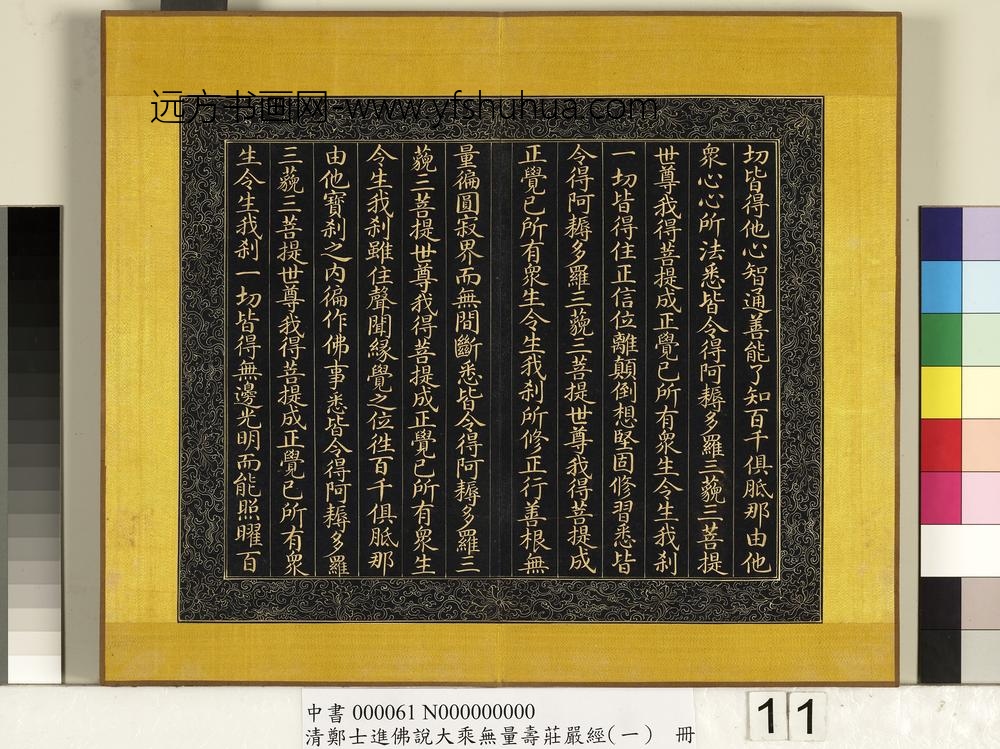 远方书画网-www.yfshuhua.com
切皆得他心智通善能了知百千俱胝那由他
衆心心所法悉皆令得阿耨多羅三藐三菩提
世尊我得菩提成正覺已所有衆生令生我刹
一切皆得住正信位離顛倒想堅固修習悉皆
令得阿耨多羅三藐三菩提世尊我得菩提成
正覺已所有衆生令生我刹所修正行善根無
量徧圓寂界而無間斷悉皆令得阿耨多羅三
藐三菩提世尊我得菩提成正覺已所有衆生
令生我刹雖住聲聞緣覺之位徃百千俱胝那
由他寳刹之内徧作佛事悉皆令得阿耨多羅
三藐三菩提世尊我得菩提成正覺已所有衆
生令生我刹一切皆得無邊光明而能照曜百
中書 000061 N000000000
清鄭士進佛說大乘無量壽莊嚴經(一) 冊
11